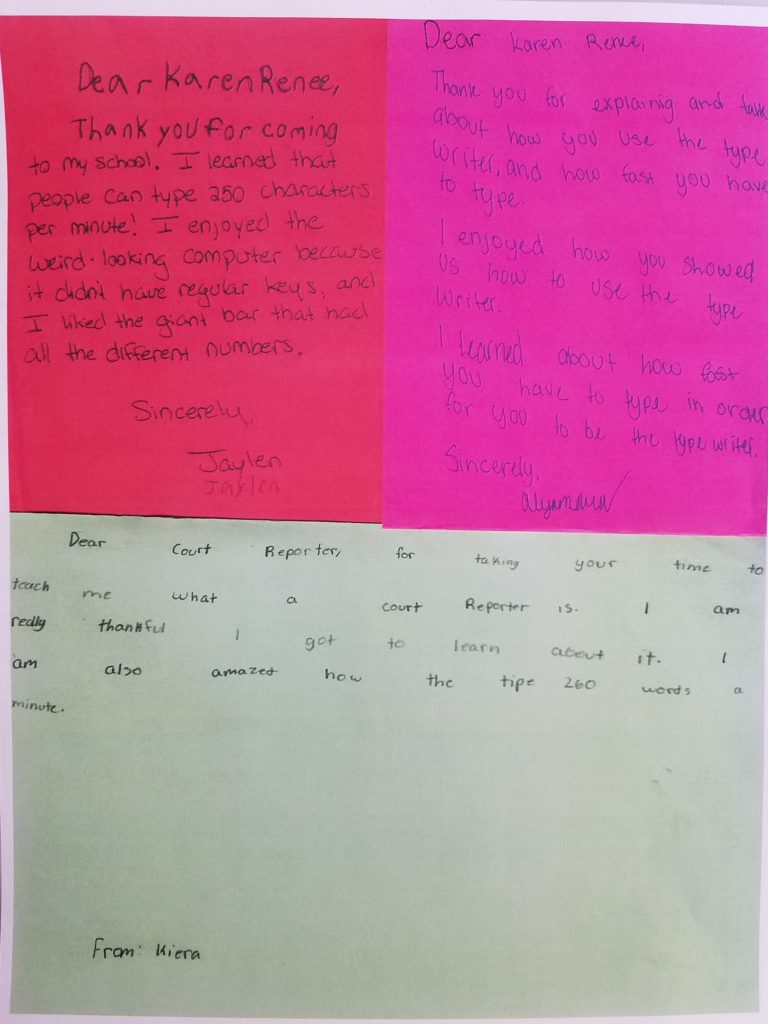 Dear Karen Renee,
Thank you for coming
to my school. I learned that
people can type 250 characters
per minute! I enjoyed the
weird-looking computer because
it didn't have regular keys, and
I liked the giant bar that had
all the different numbers.
Sincerely,
Jaylen
Jaylen
Dear Karen Renee,
Thank you for explainig and
about how you use the type
writer, and how fast you have
to type.
I enjoyed how you showed
us how to use the type
writer.
I learned about how fast
you have to type in order
for you to be the type writer.
Sincerely,
Dear Court Reporter, for taking your time to
teach me what a court Reporter is. I am
redly thankful I got to learn about it. I
am also amazed how the tipe 260 words a
minute.
From: Kiera